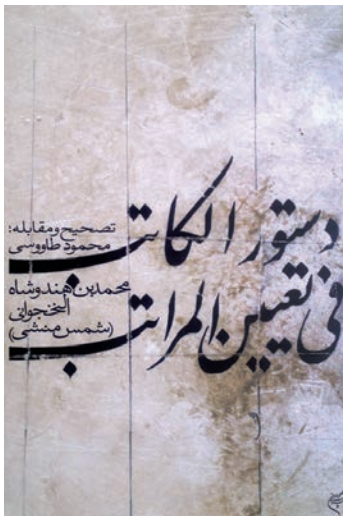 دستور الکاتب
فی تعیین المراتب
تصحیح و مقابله:
محمود طاووسی
محمدبن هندوشاه
النخجوانی
(شمس منشی)